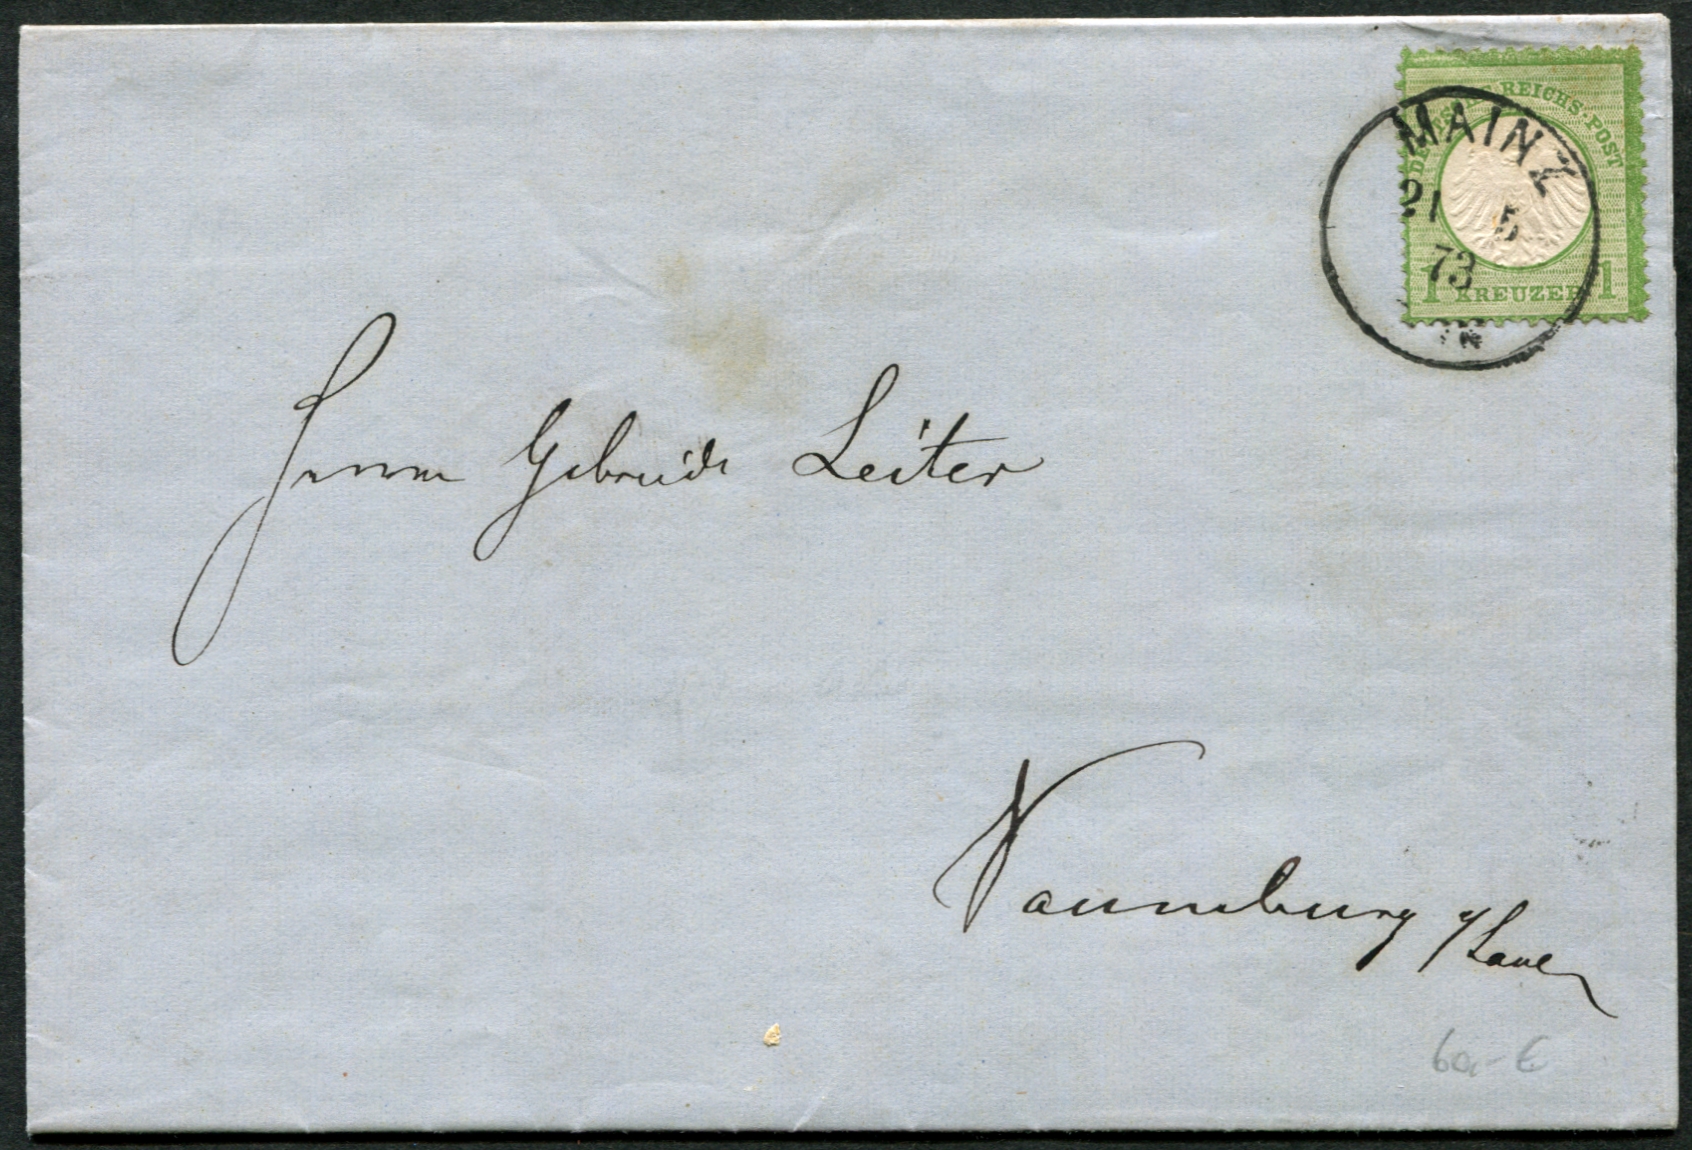 DEUTSCHE REICHS-POST
MAINZ
21 5
73
1 KREUZER 1
Herren Gebrüder Leiter
Naumburg a/Saale
60,- €